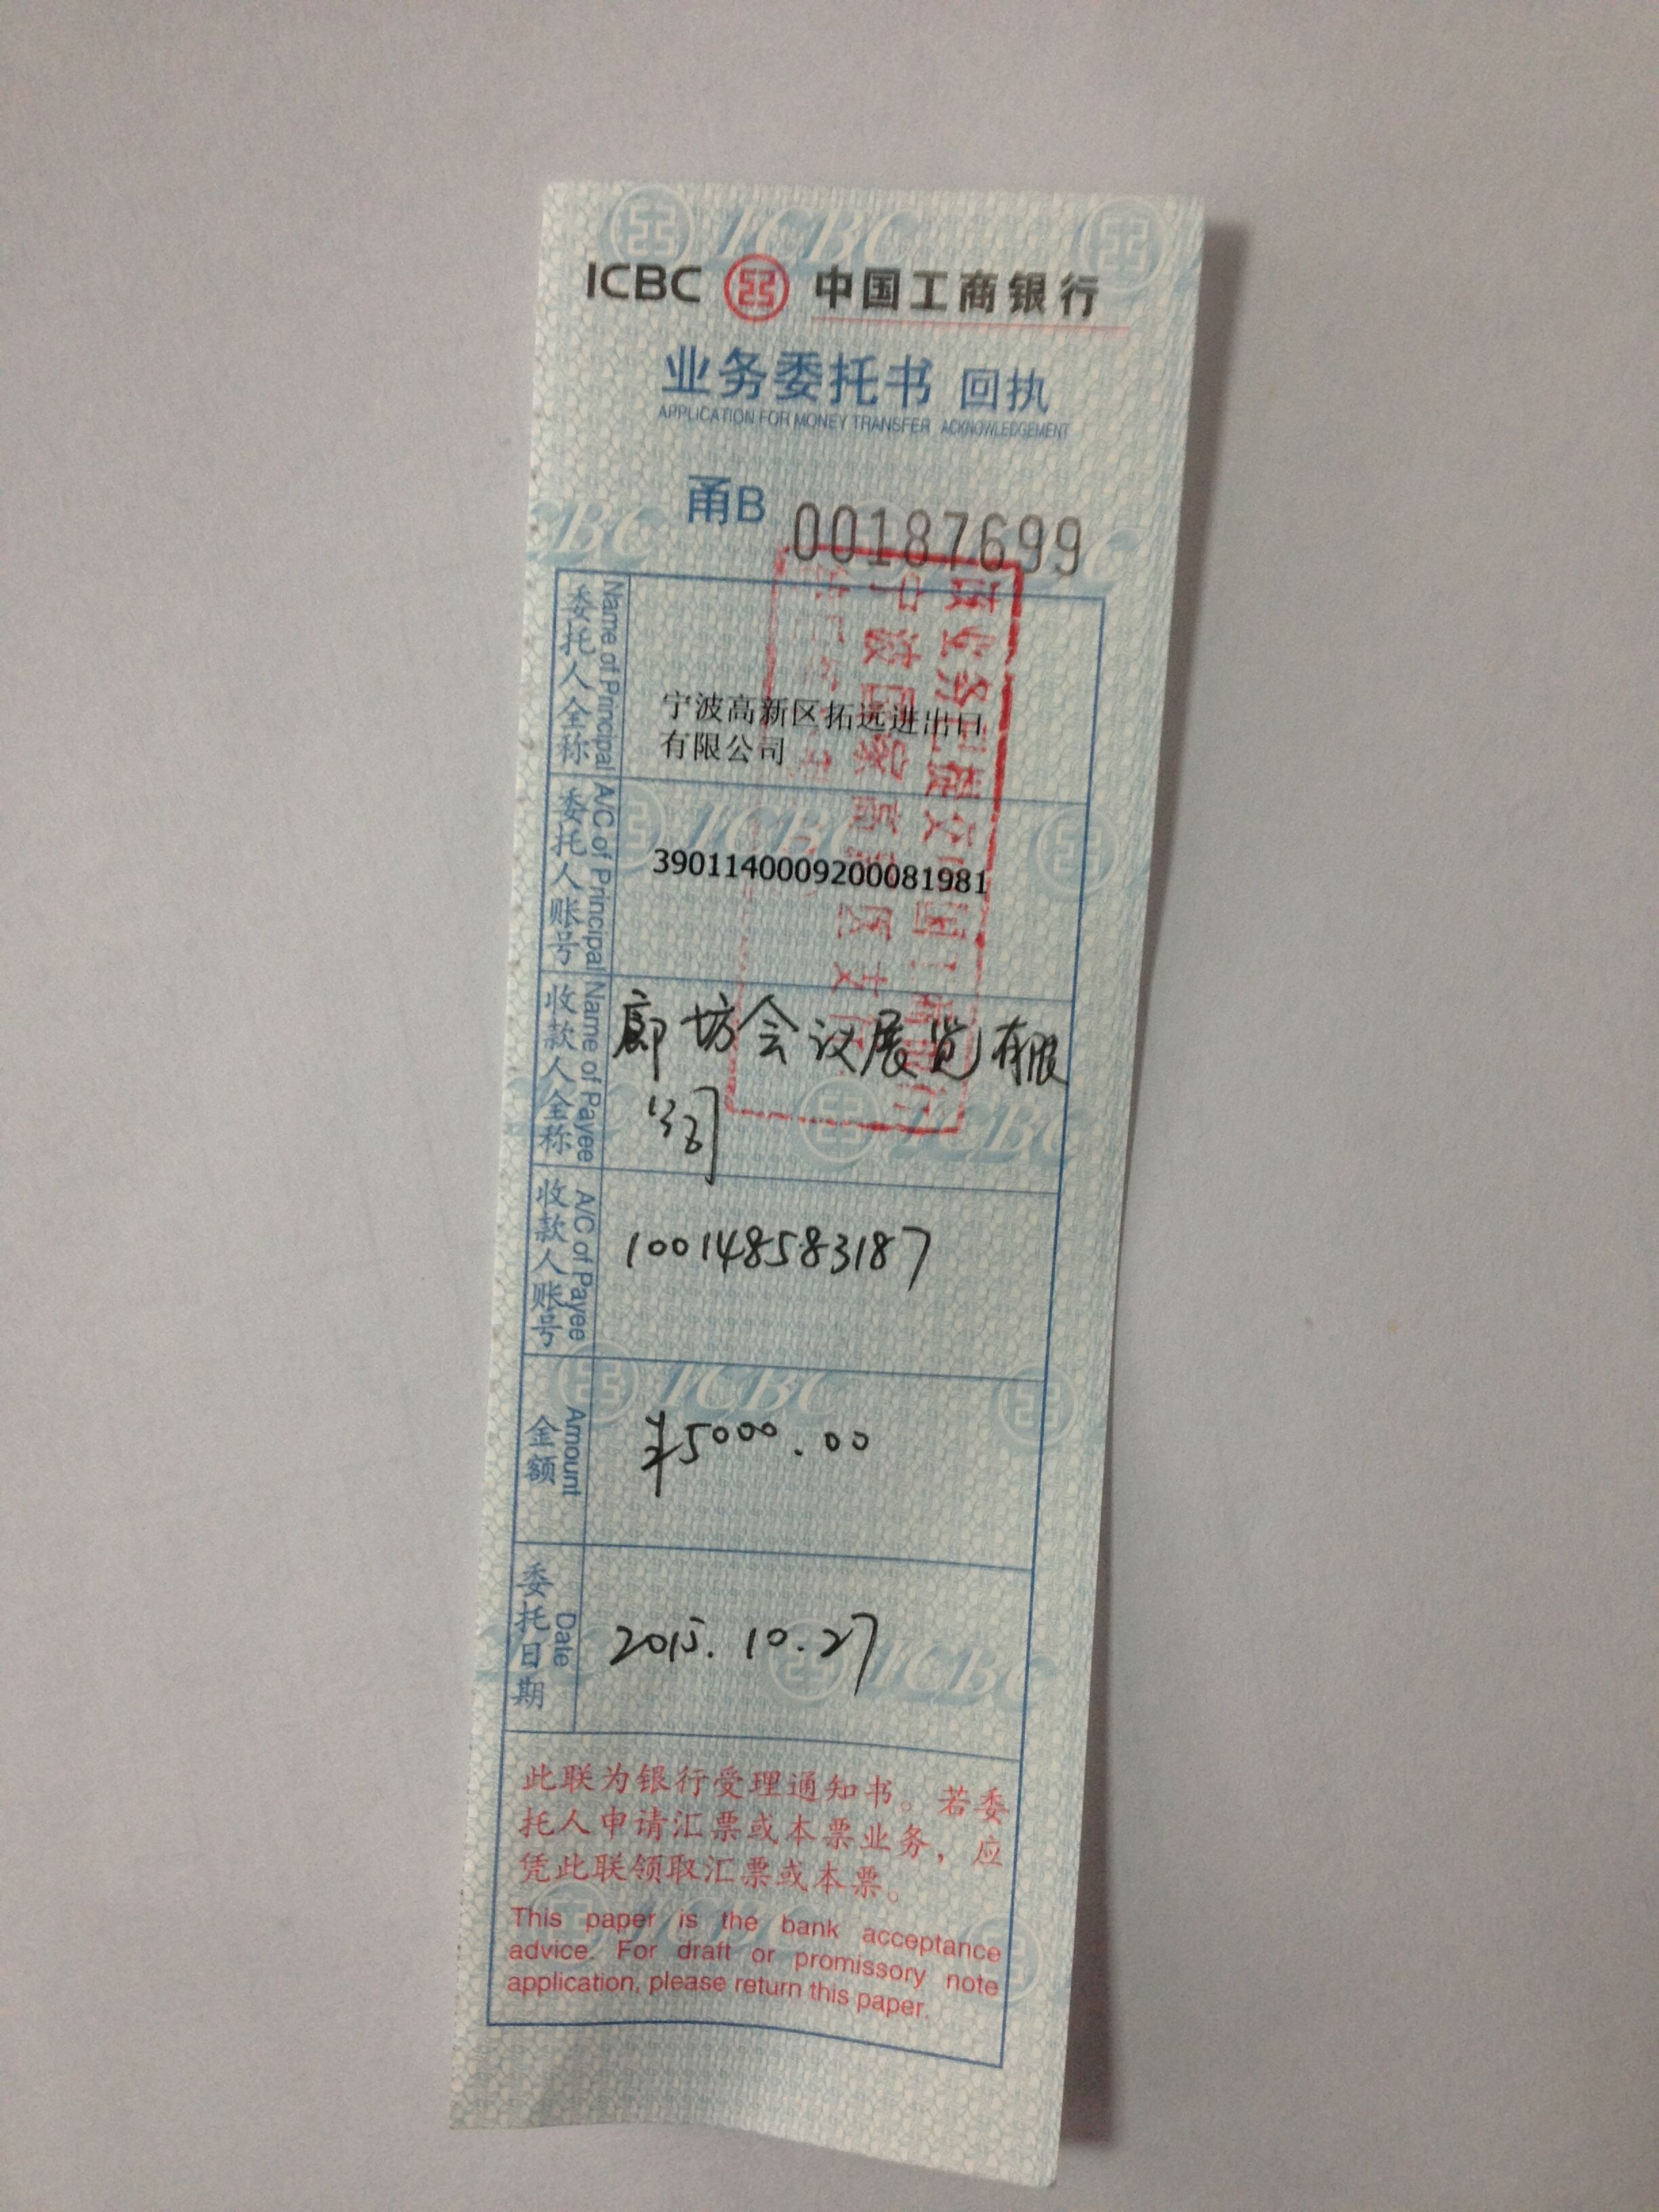 ICBC 中国工商银行
业务委托书 回执
APPLICATION FOR MONEY TRANSFER ACKNOWLEDGEMENT
甬B 00187699
委托人全称
Name of Principal
宁波高新区拓远进出口
有限公司
委托人账号
A/C of Principal
3901140009200081981
收款人全称
Name of Payee
廊坊会议展览有限
公司
收款人账号
A/C of Payee
100148583187
金额
Amount
¥5000.00
委托日期
Date
2015.10.27
此联为银行受理通知书。若委
托人申请汇票或本票业务，应
凭此联领取汇票或本票。
This paper is the bank acceptance
advice. For draft or promissory note
application, please return this paper.